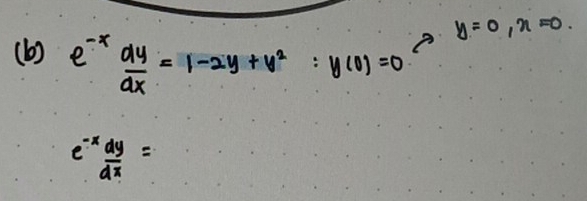 (b) e^{-x} dy/dx = 1-2y+y² : y(0)=0 ↗ y=0, x=0.
e^{-x} dy/dx =